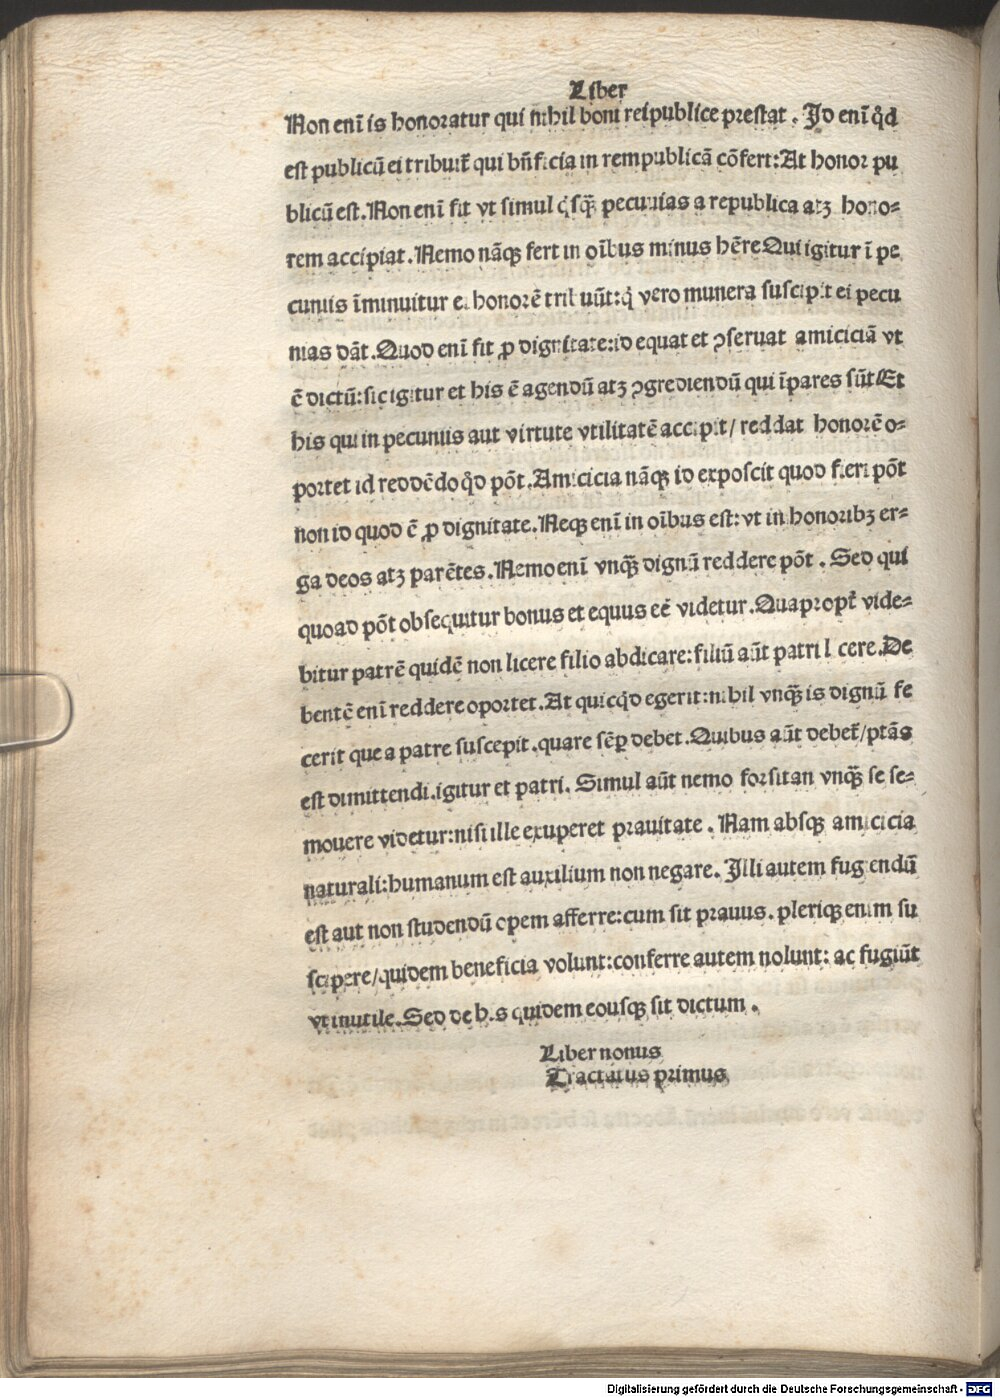 Liber
Non eni̅ is honoratur qui nihil boni reipublice prestat . Id eni̅ qd̕
est publicu̅ ei tribuit̅ qui bn̅ficia in rempublica̅ co̅fert: At honor pu
blicu̅ est. Non eni̅ fit vt simul qsq̅ʒ pecunias a republica atʒ hono⸗
rem accipiat . Nemo na̅qʒ fert in oi̅bus minus he̅re Qui igitur i̅ pe
cuniis i̅minuitur ei honore̅ tribuu̅t: q̇ vero munera suscipit ei pecu
nias da̅t . Quod eni̅ fit ꝓ dignitate: id equat et ꝯseruat amicicia̅ vt
e̅ dictu̅: sic igitur et his e̅ agendu̅ atʒ ꝯgrediendu̅ qui i̅pares su̅t Et
his qui in pecuniis aut virtute vtilitate̅ accipit / reddat honore̅ o⸗
portet id redde̅do qd̕ po̅t . Amicicia na̅qʒ id exposcit quod fieri po̅t
non id quod e̅ ꝓ dignitate . Neqʒ eni̅ in oi̅bus est: vt in honoribʒ er⸗
ga deos atʒ pare̅tes . Nemo eni̅ vnq̅ʒ dignu̅ reddere po̅t . Sed qui
quoad po̅t obsequitur bonus et equus ee̅ videtur . Quapropt̅ vide⸗
bitur patre̅ quide̅ non licere filio abdicare: filiu̅ au̅t patri licere . De
bente̅ eni̅ reddere oportet . At quicqd̕ egerit: nihil vnq̅ʒ is dignu̅ fe
cerit que a patre suscepit . quare se̅ꝑ debet . Quibus au̅t debet̅ / pta̅s
est dimittendi . igitur et patri . Simul au̅t nemo forsitan vnq̅ʒ se se⸗
mouere videtur: nisi ille exuperet prauitate . Nam absqʒ amicicia
naturali: humanum est auxilium non negare . Illi autem fugiendu̅
est aut non studendu̅ opem afferre: cum sit prauus . pleriqʒ enim su
scipere / quidem beneficia volunt: conferre autem nolunt: ac fugiu̅t
vt inutile . Sed de his quidem eousqʒ sit dictum .
Liber nonus
Tractatus primus
Digitalisierung gefördert durch die Deutsche Forschungsgemeinschaft - DFG